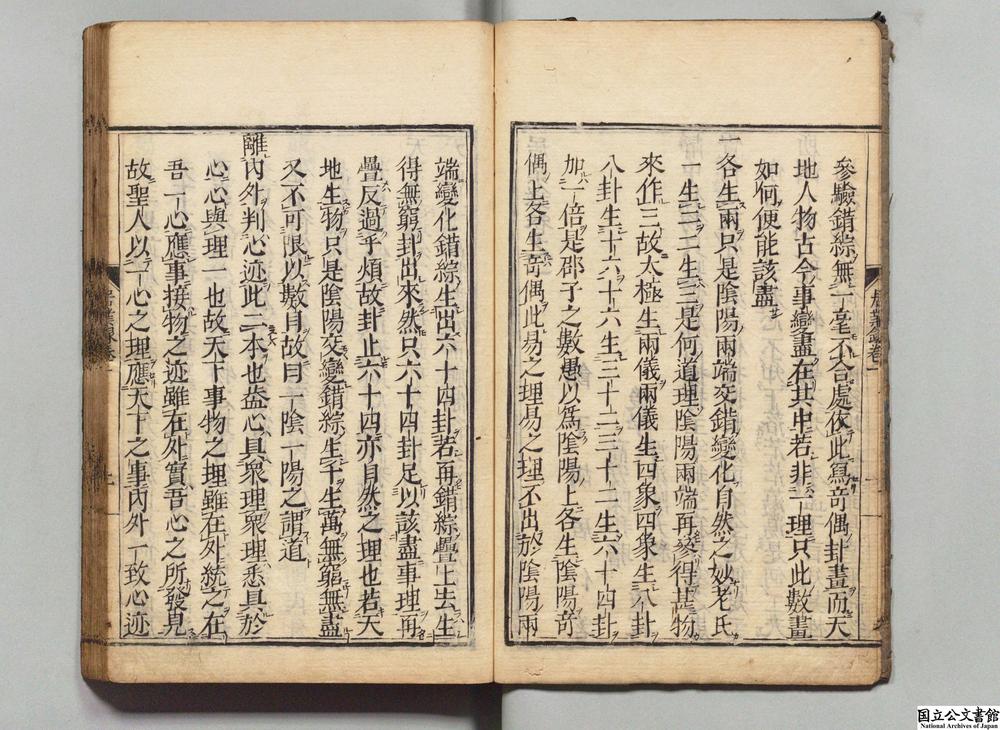 參驗錯綜無一毫不合處依此爲奇偶卦畫而天
地人物古今事變盡在其中若非一理只此數畫
如何便能該盡
一各生兩只是陰陽兩端交錯變化自然之妙老氏
一生二二生三是何道理陰陽兩端再交得甚物
來作三故太極生兩儀兩儀生四象四象生八卦
八卦生十六十六生三十二三十二生六十四卦
加一倍是邵子之數愚以爲陰陽上各生陰陽奇
偶上各生奇偶此易之理易之理不出於陰陽兩
端變化錯綜生出六十四卦若再錯綜疊上去生
得無窮卦出來然只六十四卦足以該盡事理再
疊反過乎煩故卦止六十四亦自然之理也若天
地生物只是陰陽交變錯綜生千生萬無窮無盡
又不可限以數目故曰一陰一陽之謂道
離內外判心迹此二本也蓋心具衆理衆理悉具於
心心與理一也故天下事物之理雖在外統之在
吾一心應事接物之迹雖在外實吾心之所發見
故聖人以一心之理應天下之事內外一致心迹
居業錄卷一
国立公文書館
National Archives of Japan